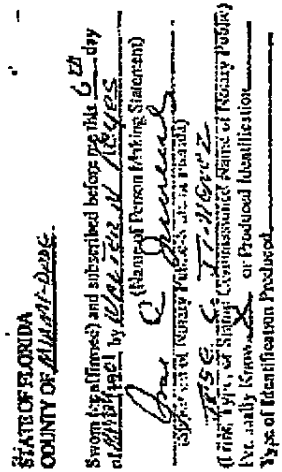 STATE OF FLORIDA
COUNTY OF MIAMI-DADE
Sworn (or affirmed) and subscribed before me this 6th day
of by
(Name of Person Making Statement)
(Signature of Notary Public - State of Florida)
Jose C
(Print, Type, or Stamp Commissioned Name of Notary Public)
Personally Known X or Produced Identification
Type of Identification Produced